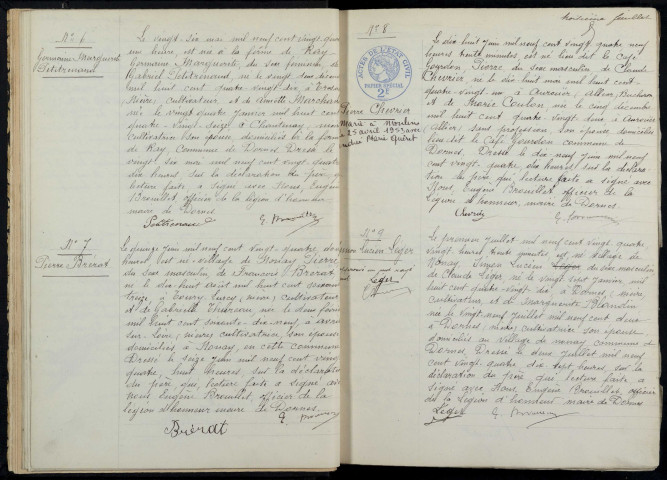 N° 6
Germaine Marguerite
Petitrenaud
Le vingt six mai mil neuf cent vingt quatre
une heure, est née à la ferme de Ray
Germaine Marguerite, du sexe féminin, de
Gabriel Petitrenaud, né le vingt six
mil huit cent quatre vingt dix à
cultivateur, et de Marchand
née le vingt quatre janvier mil huit cent
quatre vingt à Chantenay, sans
cultivatrice son épouse, domiciliés en la ferme
de Ray, commune de Dornes. Dressé le
vingt six mai mil neuf cent vingt quatre
dix heures sur la déclaration du père qui
lecture faite a signé avec Nous, Eugène
Breuillet, officier de la légion d'honneur
maire de Dornes
Petitrenaud
N° 7
Pierre Brérat
Le quinze juin mil neuf cent vingt quatre,
heures, est né village de Nonay, Pierre
du sexe masculin de François Brérat
né le dix huit août mil huit cent
seize, à Toury Lurcy, cultivateur
et de Gabrielle Thureau, née le deux février
mil huit cent soixante dix neuf, à
sur Loire, cultivatrice, son épouse
domiciliés à Nonay, en cette commune
Dressé le seize juin mil neuf cent vingt
quatre, huit heures, sur la déclaration
du père qui, lecture faite a signé avec
nous Eugène Breuillet, officier de la
légion d'honneur maire de Dornes.
Brérat
troisième feuillet
N° 8
ACTES DE L'ÉTAT CIVIL
PAPIER SPÉCIAL
2F
Pierre Chevrier
Marié à Moulins
le 25 avril 1953 avec
Marie Quérit
Le dix huit juin mil neuf cent vingt quatre neuf
heures trente minutes, est né lieu dit le Café
Gourdon Pierre du sexe masculin de Claude
Chevrier né le dix huit mai mil huit cent
quatre vingt un à Aurouër, Allier, Bucheron
et de Marie Coulon, née le cinq décembre
mil huit cent quatre vingt deux à Aurouër
Allier, sans profession, son épouse domiciliés
lieu dit le Café Gourdon commune de
Dornes. Dressé le dix neuf juin mil neuf
cent vingt quatre dix heures sur la déclara-
tion du père qui, lecture faite a signé avec
Nous, Eugène Breuillet, officier de la
Légion d'honneur, maire de Dornes.
Chevrier
N° 9
Simon Lucien Léger
Léger
Le premier juillet mil neuf cent vingt quatre
vingt heures trente minutes est né village de
Nonay Simon Lucien Léger du sexe masculin
de Claude Léger, né le vingt sept janvier, mil
huit cent quatre vingt dix à Dornes,
cultivateur, et de Marguerite Blondin
née le vingt neuf juillet mil neuf cent deux
à Dornes, cultivatrice, son épouse
domiciliés au village de Nonay commune de
Dornes, Dressé le deux juillet mil neuf
cent vingt quatre dix sept heures, sur la
déclaration du père qui lecture faite a
signé avec Nous, Eugène Breuillet, officier
de la Légion d'honneur maire de Dornes
Léger